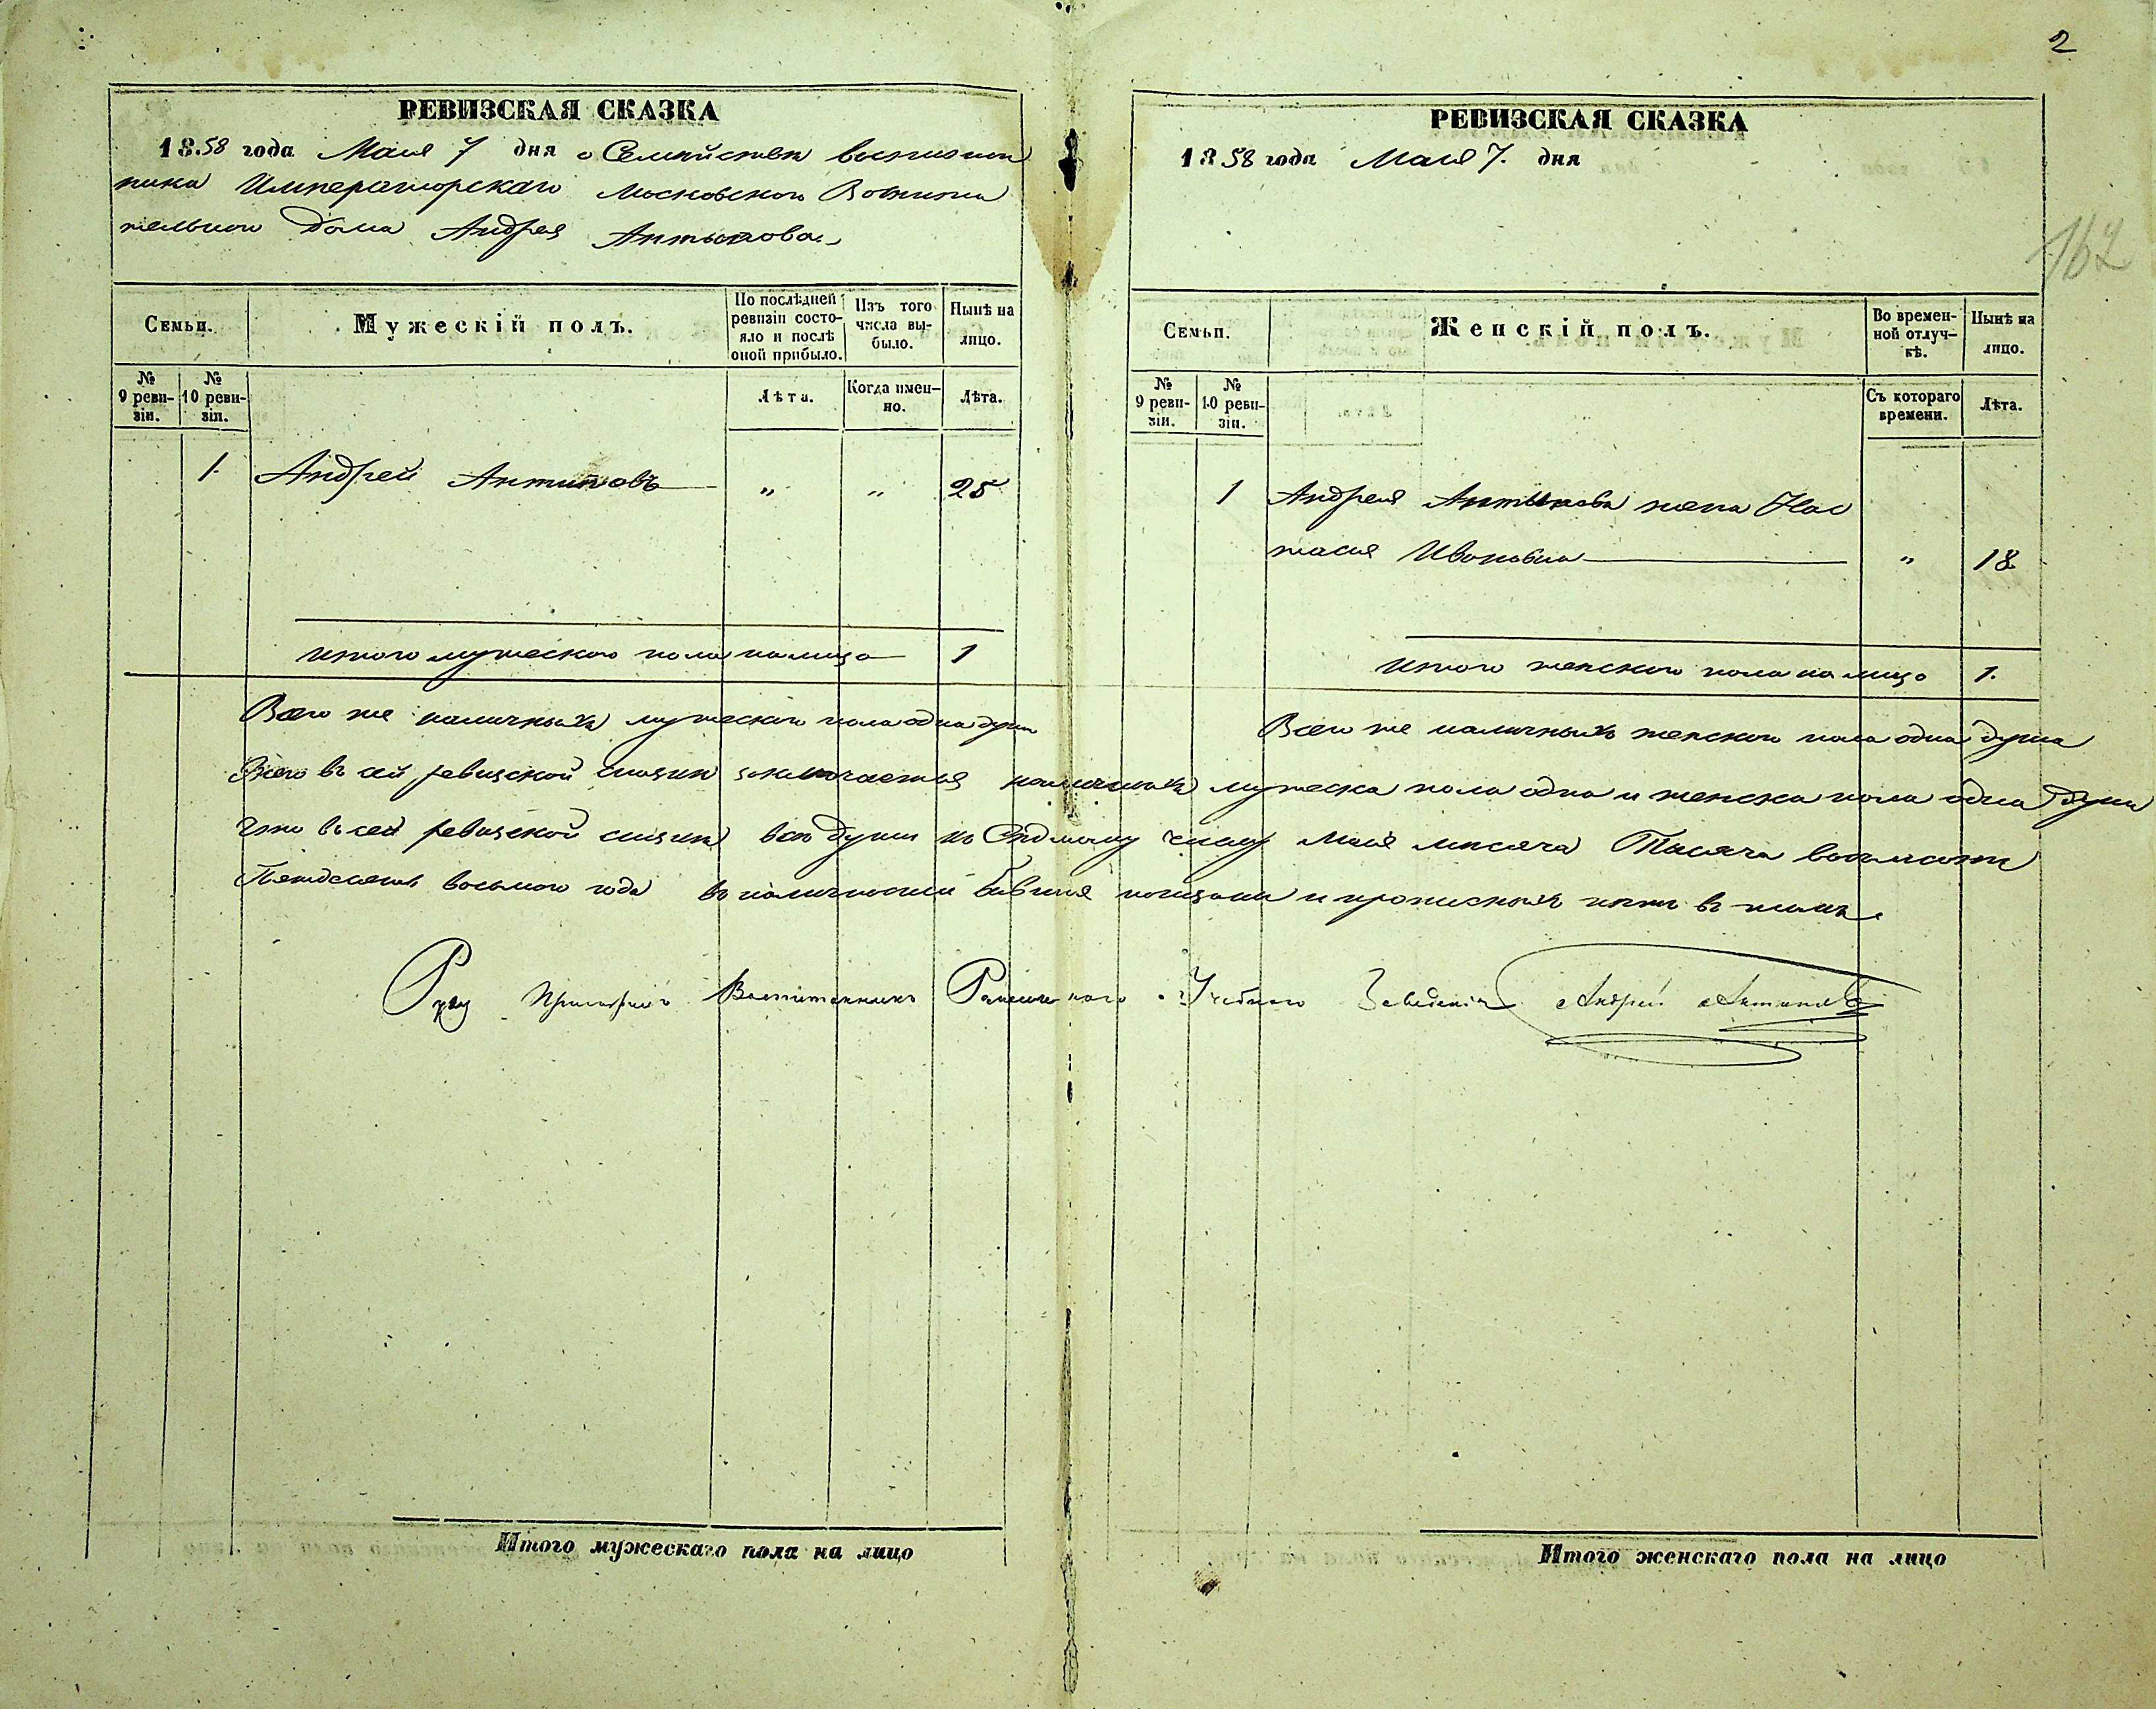 2
162
РЕВИЗСКАЯ СКАЗКА
1858 года Маія 7 дня о Семействѣ воспитан
ника Императорскаго Московскаго Воспита
тельнаго дома Андрея Антипова.
Семьи.
Мужескій полъ.
По послѣдней ревизіи состояло и послѣ оной прибыло.
Изъ того числа выбыло.
Нынѣ на лицо.
№ 9 ревизіи.
№ 10 ревизіи.
Лѣта.
Когда именно.
Лѣта.
1. Андрей Антиповъ — „ „ 25
Итого мужескаго пола на лицо — 1
Всего же наличныхъ мужескаго пола одна душа
РЕВИЗСКАЯ СКАЗКА
1858 года Маія 7. дня
Семьи.
Женскій полъ.
Во временной отлучкѣ.
Нынѣ на лицо.
№ 9 ревизіи.
№ 10 ревизіи.
Съ котораго времени.
Лѣта.
1 Андрея Антипова жена Нас
тасія Ивановна — „ 18
Итого женскаго пола на лицо 1.
Всего же наличныхъ женскаго пола одна душа
Всего въ сей ревизской сказкѣ заключается наличныхъ мужеска пола одна и женска пола одна душа
Что въ сей ревизской сказкѣ всѣ души къ Седьмому числу Маія мѣсяца Тысяча восемсотъ
Пятьдесятъ восьмого года въ наличности бывшія показаны и прописныхъ нѣтъ въ томъ
Воспитанникъ Ремесленнаго Учебнаго Заведенія Андрей Антиповъ
Итого мужескаго пола на лицо
Итого женскаго пола на лицо